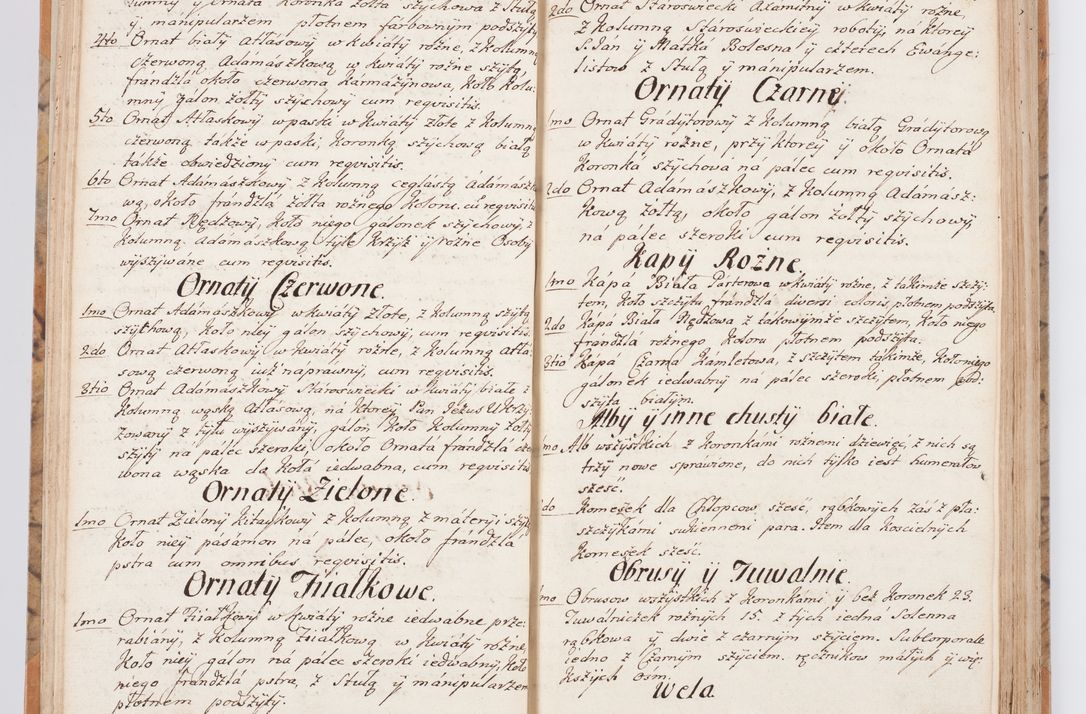 ȷumny ÿ Ornata Koronka żołta szychowa z Stułą
ÿ manipularzem płotnem farbownym podszyty
4to Ornat biały Atłasowÿ w kwiaty rożne, z kolumną
czerwoną Adamaszkową w kwiaty rożne szytą
frandzla około czerwona karmazynowa, Koło Kolu:
mny galon żołty szychowy cum reqvisitis.
5to Ornat Atłaskowÿ w paski w kwiaty złote z kolumną
czerwoną także w paski, koronką szychową białą
także obwiedziony cum reqvisitis.
6to Ornat Adamaszkowy z kolumną ceglastą adamasz
wą, około frandzla żołta rożnego koloru. cū reqvisitis
7mo Ornat Rędzowÿ, koło niego galonek szychowy, z
kolumną Adamaszkową tyle krzyż ÿ rożne Osoby
wyszywane cum reqvisitis.
Ornatÿ Czerwone.
1mo Ornat Adamaszkowy w kwiaty złote, z kolumną szytą
szychową, koło nieÿ galon szychowy, cum reqvisitis
2do Ornat Atłaskowÿ w kwiaty rożne, z kolumną Atła:
sową czerwoną iuż naprawny, cum reqvisitis.
3tio Ornat Adamaszkowy Staroświecki w kwiaty białe z
kolumną wąską Atłasową, na ktoreÿ Pan Jezus Ukrzy:
zowany z tyłu wyszywany, galon koło kolumny żołty
szyty na palec szeroki, około Ornata frandzla cze
wona wąska da koła iedwabna, cum reqvisitis
Ornatÿ Zielone.
1mo Ornat Zielony kitaÿkowÿ z kolumną z materyi szytą
koło nieÿ pasamon na palec, około frandzla
pstra cum omnibus reqvisitis.
Ornatÿ Fijałkowe.
1mo Ornat Fijałkowÿ w kwiaty rożne iedwabne prze:
rabiany, z kolumną Fijałkową w kwiaty rożne,
koło nieÿ galon na palec szeroki iedwabny, koło
niego frandzla pstra, z Stułą ÿ manipularzem
płotnem podszyty.
2do Ornat Staroswiecki Axamitny w kwiaty rożne,
z kolumną Staroswieckieÿ roboty, na ktoreÿ
S. Jan ÿ Matka Bolesna ÿ czterech Ewange:
listow z Stułą ÿ manipularzem.
Ornatÿ Czarne.
1mo Ornat Gradytorowy z kolumną białą Gradytorową
w kwiaty rożne, przy ktoreÿ ÿ około Ornata
koronka szychowa na palec cum reqvisitis.
2do Ornat Adamaszkowy, z kolumną Adamasz:
kową żołtą, około galon żołty szychowy,
na palec szeroki cum reqvisitis.
Kapÿ Rożne.
1mo Kapa Biała Parterowa w kwiaty rożne, z takimże szczy:
tem, koło szczytu frandzla diversi coloris płotnem podszyta.
2do Kapa Biała Rędzowa z takowymże szczytem, koło niego
frandzla rożnego koloru płotnem podszyta.
3tio Kapa Czarna Kamletowa, z szczytem takimże, koło niego
galonek iedwabny na palec szeroki, płotnem pod:
szyta białym.
Albÿ ÿ inne chustÿ białe.
1mo Alb wszystkich z koronkami rożnemi dziewięc, z nich są
trzy nowe sprawione, do nich tylko iest humerałow
sześc.
2do Komeżek dla Chłopcow sześc, rąbkowych zaś z pła:
szczykami sukiennemi para. Item dla koscielnych
komeżek sześc.
Obrusÿ ÿ Tuwalnie.
1mo Obrusow wszystkich z koronkami ÿ bez koronek 23.
Tuwalniczek rożnych 15. z tych iedna Solenna
rąbkowa ÿ dwie z czarnym szyciem. Subcorporale
iedno z Czarnym szyciem. ręcznikow małych ÿ wię:
kszych Osm.
Wela